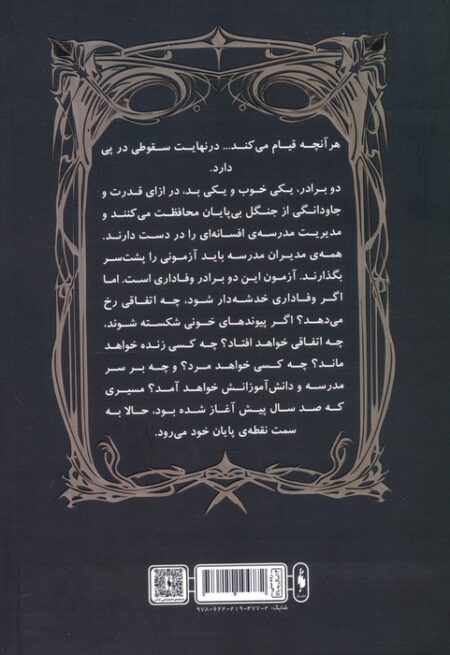 هرآنچه قیام می‌کند... درنهایت سقوطی در پی
دارد.
دو برادر، یکی خوب و یکی بد، در ازای قدرت و
جاودانگی از جنگل بی‌پایان محافظت می‌کنند و
مدیریت مدرسه‌ی افسانه‌ای را در دست دارند.
همه‌ی مدیران مدرسه باید آزمونی را پشت‌سر
بگذارند. آزمون این دو برادر وفاداری است. اما
اگر وفاداری خدشه‌دار شود، چه اتفاقی رخ
می‌دهد؟ اگر پیوندهای خونی شکسته شوند،
چه اتفاقی خواهد افتاد؟ چه کسی زنده خواهد
ماند؟ چه کسی خواهد مرد؟ و چه بر سر
مدرسه و دانش‌آموزانش خواهد آمد؟ مسیری
که صد سال پیش آغاز شده بود، حالا به
سمت نقطه‌ی پایان خود می‌رود.
شابک: ۲-۴۷۷-۲۱۹-۶۲۲-۹۷۸